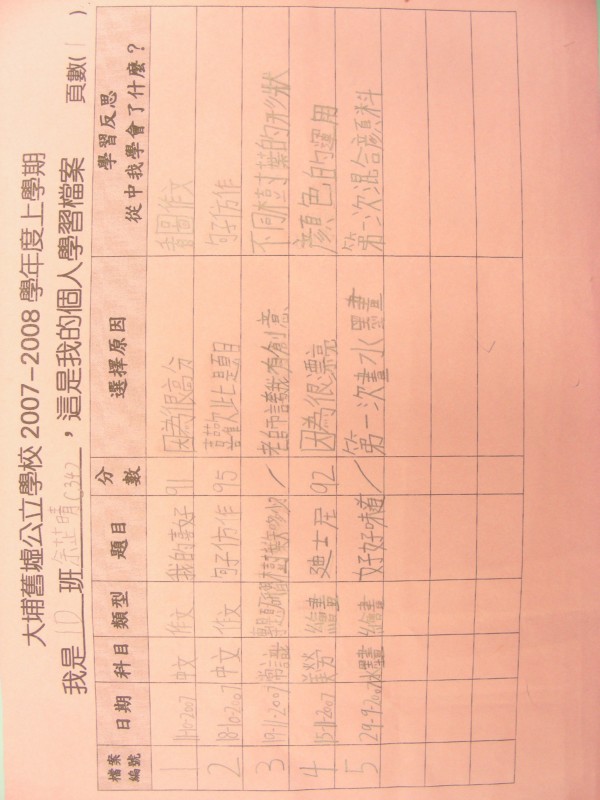 大埔舊墟公立學校 2007-2008 學年度上學期
我是 1D 班 余芷晴 C342 ，這是我的個人學習檔案 頁數( 1 )
檔案編號 日期 科目 類型 題目 分數 選擇原因 學習反思 從中我學會了什麼？
1 11-10-2007 中文 作文 我的喜好 91 因為很高分 看圖作文
2 18-10-2007 中文 作文 句子仿作 95 喜歡此題目 句子仿作
3 19-11-2007 常識 / 老師讚我有創意 不同樹葉的形狀
4 15-11-2007 美勞 繪畫 迪士尼 92 因為很漂亮 顏色的運用
5 29-9-2007 繪畫 好好味道 / 第一次畫水墨畫 第一次混合顏料